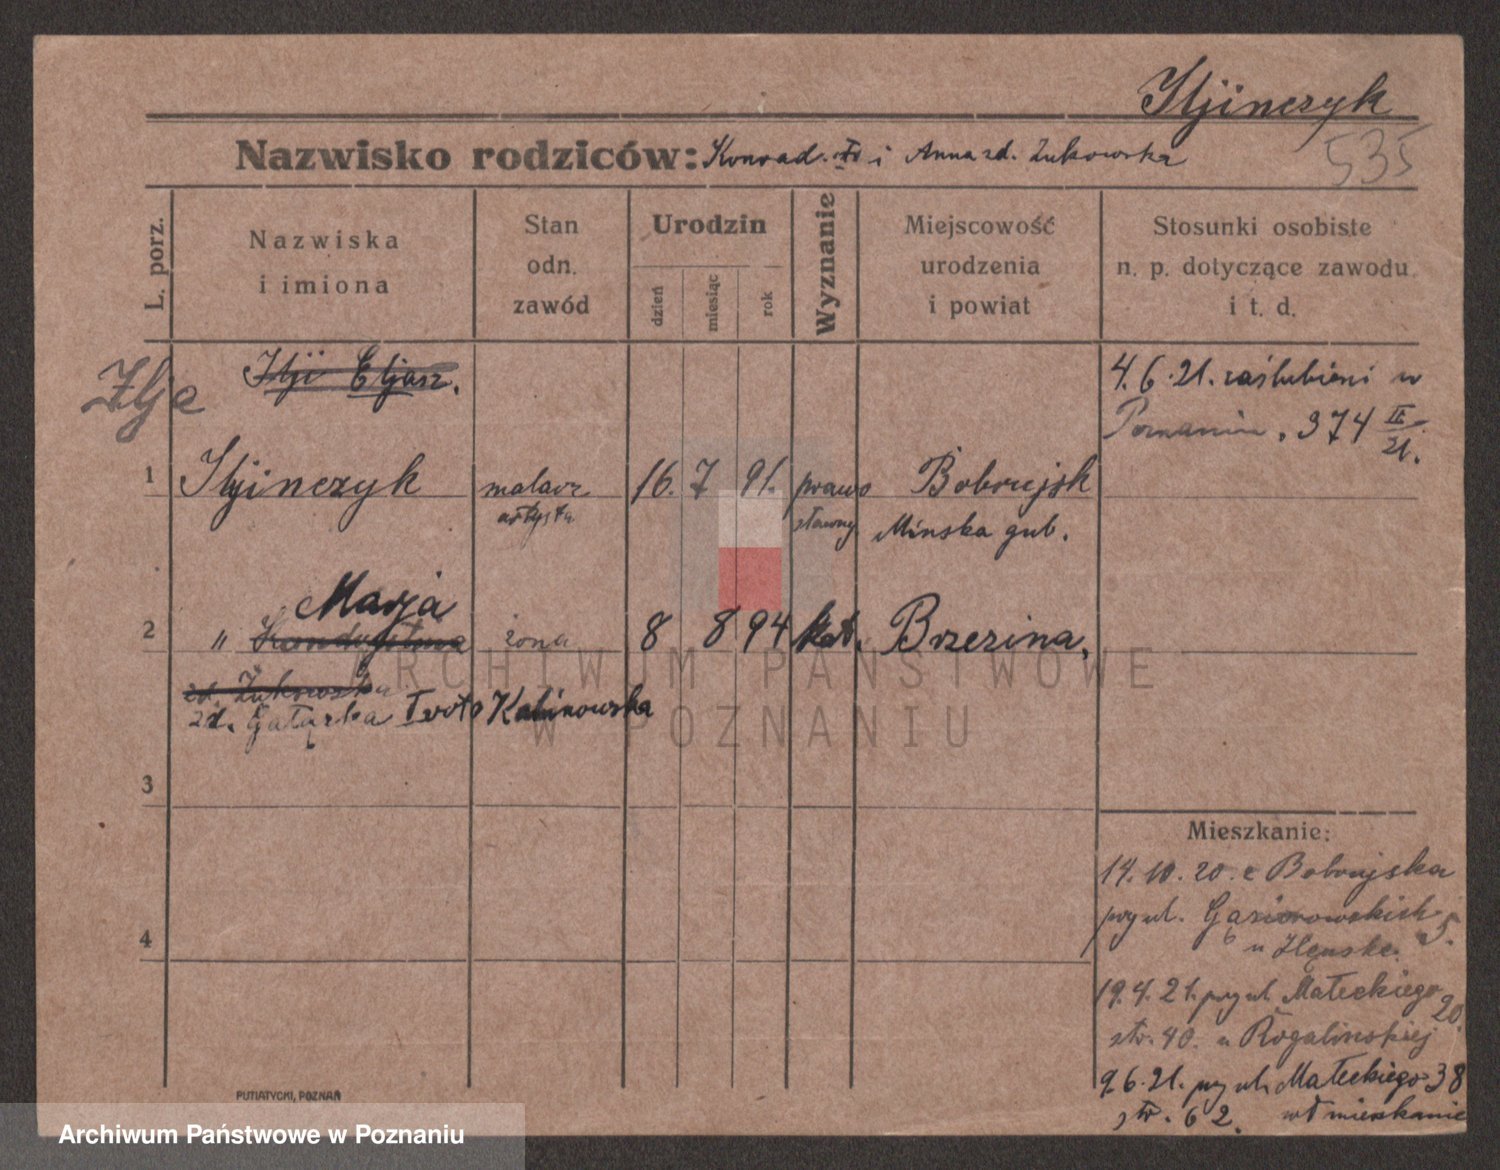 Iljinczyk
535
Nazwisko rodziców: Konrad i Anna zd. Żukowska
L. porz.
Nazwiska
i imiona
Stan
odn.
zawód
Urodzin
dzień
miesiąc
rok
Wyznanie
Miejscowość
urodzenia
i powiat
Stosunki osobiste
n. p. dotyczące zawodu
i t. d.
Ilje
Ilji Eljasz.
4.6.21. zaślubieni w
Poznaniu. 374 II/21.
1 Iljinczyk malarz 16. 7 91. prawo Bobrujsk
artysta sławny Mińska gub.
Marja
2 " żona 8 8 94 kat. Brzezina,
zd. Żukowska
zd. Gałązka Ivoto Kalinowska
3
4
Mieszkanie:
14.10.20. z Bobrujska
przy ul. Gąsiorowskich 5.
19.4.21. przy ul. Małeckiego 20.
str. 40. u Rogalińskiej
9.6.21. przy ul. Małeckiego 38
str. 62. wł mieszkanie
PUTIATYCKI, POZNAŃ
ARCHIWUM PAŃSTWOWE
W POZNANIU
Archiwum Państwowe w Poznaniu